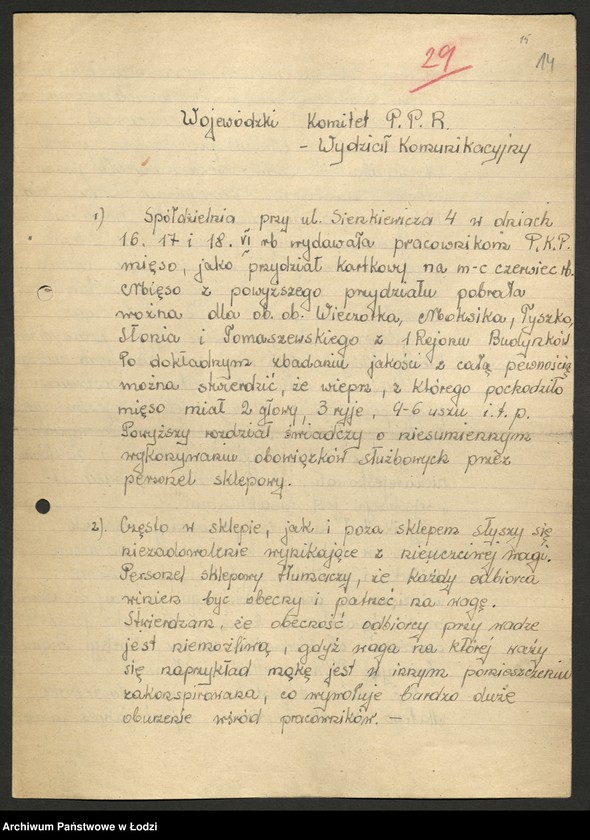 29
15
14
Wojewódzki Komitet P.P.R.
- Wydział Komunikacyjny
1) Spółdzielnia przy ul. Sienkiewicza 4 w dniach
16. 17 i 18. VI rb wydawała pracownikom P.K.P.
mięso, jako przydział kartkowy na m-c czerwiec rb.
Mięso z powyższego przydziału pobrała
woźna dla ob. ob. Wieczorka, Moksika, Pyszko,
Słonia i Pomaszewskiego z 1 Rejonu Budynków
Po dokładnym zbadaniu jakości z całą pewnością
można stwierdzić, że wieprz, z którego pochodziło
mięso miał 2 głowy, 3 ryje, 4-6 uszu i.t.p.
Powyższy rozdział świadczy o niesumiennym
wykonywaniu obowiązków służbowych przez
personel sklepowy.
2). Często w sklepie, jak i poza sklepem słyszy się
niezadowolenie wynikające z nieuczciwej wagi.
Personel sklepowy tłumaczy, że każdy odbiorca
winien być obecny i patrzeć na wagę.
Stwierdzam, że obecność odbiorcy przy wadze
jest niemożliwą, gdyż waga na której waży
się naprzykład mąkę jest w innym pomieszczeniu
zakonspirowana, co wywołuje bardzo duże
oburzenie wśród pracowników. —
Archiwum Państwowe w Łodzi